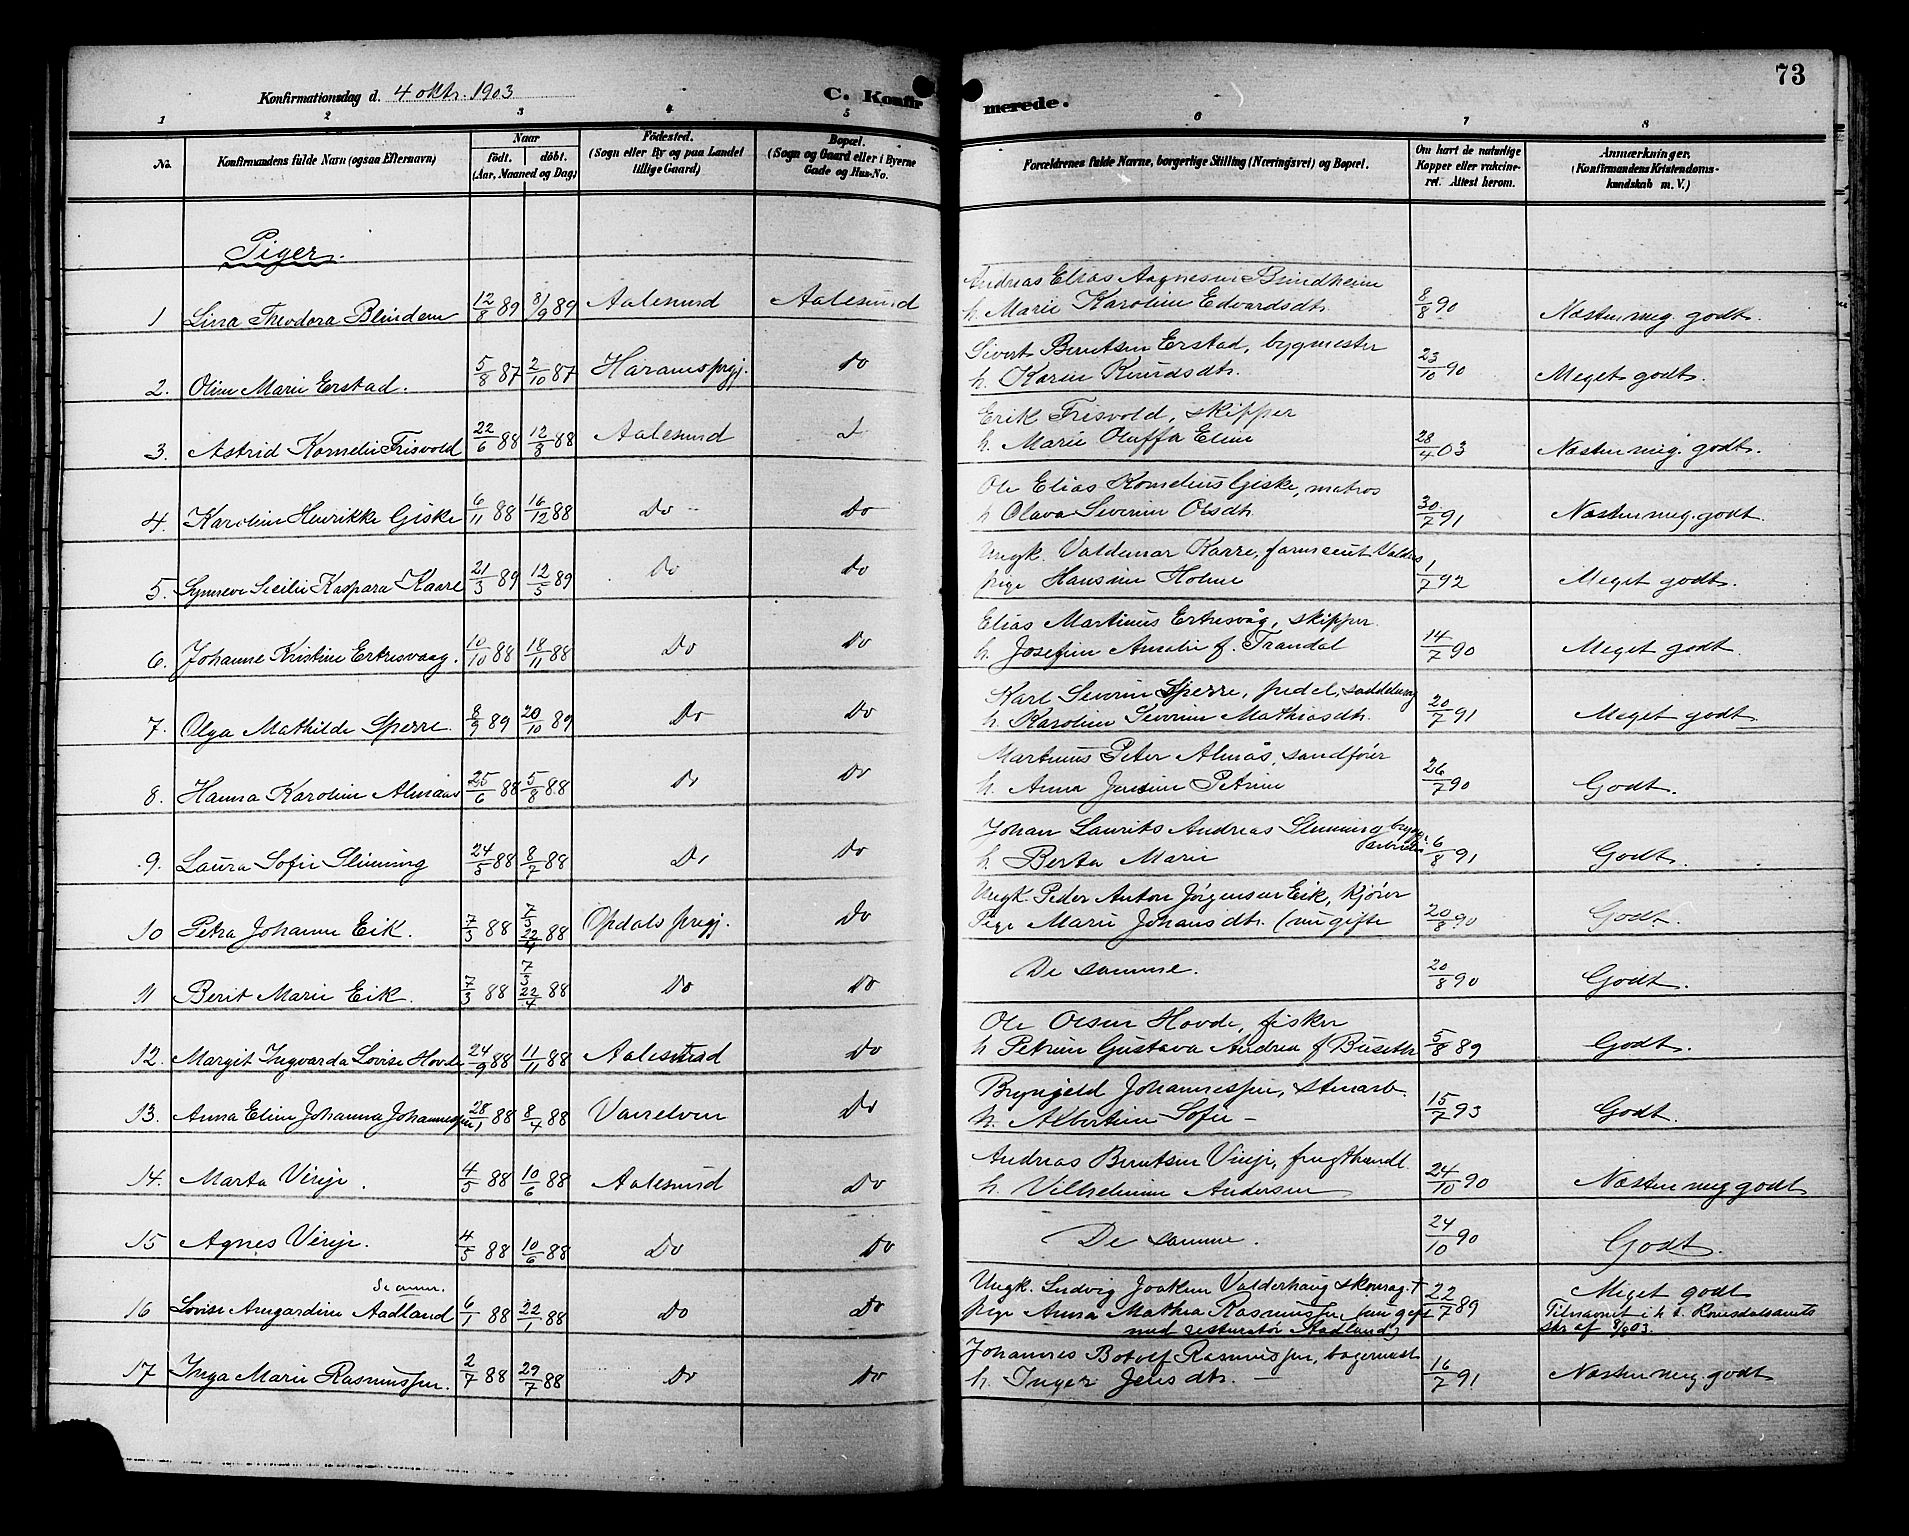 73
Konfirmationsdag d. 4 oktr. 1903
C. Konfirmerede.
1 2 3 4 5 6 7 8
No. Konfirmandens fulde Navn (ogsaa Efternavn) Naar født. døbt. (Aar, Maaned og Dag) Fødested. (Sogn eller By og paa Landet tillige Gaard) Bopæl. (Sogn og Gaard eller i Byerne Gade og Hus-No. Forældrenes fulde Navne, borgerlige Stilling (Næringsvei) og Bopæl. Om havt de naturlige Kopper eller vakcineret. Attest herom. Anmærkninger. (Konfirmandens Kristendomskundskab m. V.)
Piger.
Andreas Elias Aagnesen Brindheim
1 Lina Theodora Blindem 12/8 89 8/9 89 Aalesund Aalesund h. Marie Karoline Edvardsdtr. 8/8 90 Næsten meg. godt.
Sivert Berntsen Erstad, bygmester
2. Oline Marie Erstad. 5/8 87 2/10 87 Harams prgj. Do h. Karen Knudsdtr. 23/10 90 Meget godt.
Erik Frisvold, skipper
3. Astrid Kornelie Frisvold 22/6 88 12/8 88 Aalesund h. Marie Oluffa Eline 28/4 03 Næsten meg. godt.
Ole Elias Kornelius Giske, matros
4. Karoline Henrikke Giske 6/11 88 16/12 88 Do Do h Olava Severine Olsdtr. 30/7 91 Næsten meg. godt.
Ungk. Valdemar Kaare, farmaceut
5. Synneve Sicilie Kaspara Kaare 21/3 89 12/5 89 Do Do pige Hansine Holme 1/7 92 Meget godt.
Elias Martinus Ertresvåg, skipper.
6. Johanne Kristine Ertresvaag. 10/10 88 18/11 88 Do Do h. Josefine Amalie f. Trandal 14/7 90 Meget godt.
Karl Severin Sperre, pedel,
7. Olga Mathilde Sperre. 8/9 89 20/10 89 Do Do h. Karoline Severine Mathiasdtr. 20/7 91 Meget godt
Martinus Peter Almås sandføier
8. Hanna Karoline Almaas 25/6 88 5/8 88 Do Do h. Anna Jensine Petrine 26/7 90 Godt.
Johan Laurits Andreas Slinning brygge-
arbeider
9. Laura Sofie Slinning 24/5 88 8/7 88 Do Do h Berta Marie 6/8 91 Godt.
Ungk. Peder Anton Jørgensen Eik, kjører
10 Petra Johanne Eik. 7/3 88 7/3 22/4 88 Opdals prgj. Do Pige Marie Johansdtr. (nu gifte 20/8 90 Godt.
11 Berit Marie Eik. 7/3 88 7/3 22/4 88 Do Do De samme. 20/8 90 Godt.
Ole Olsen Hovde, fisker
12. Margit Ingvarda Lovise Hovde 24/9 88 11/11 88 Aalesund Do h Petrine Gustava Andrea f Buseth 5/8 89 Godt.
Brynjeld Johannessen, stenarb.
13. Anna Eline Johanna Johannessen 28/1 88 8/4 88 Vanelven Do h. Albertine Sofie — 15/7 93 Godt.
Andreas Berntsen Vinje, frugthandl.
14. Marta Vinje. 4/5 88 10/6 88 Aalesund Do h. Vilhelmine Andersen 24/10 90 Næsten meg godt
15 Agnes Vinje. 4/5 88 10/6 88 Do Do De samme. 24/10 90 Godt.
Se anm. Ungk. Ludvig Joakim Valderhaug skomag. † Meget godt
16 Lovise Amgardine Aadland 6/1 88 22/1 88 Do Do pige Anna Mathea Rasmussen (nu gift 22/7 89 Tilnavnet i h. t. Romsdalsamts
med restauratør Aadland) skr af 8/9 03.
Johannes Botolf Rasmussen, bagermest
17 Inga Marie Rasmussen. 2/7 88 29/7 88 Do Do h. Inger Jensdtr. — 16/7 91 Næsten meg. godt